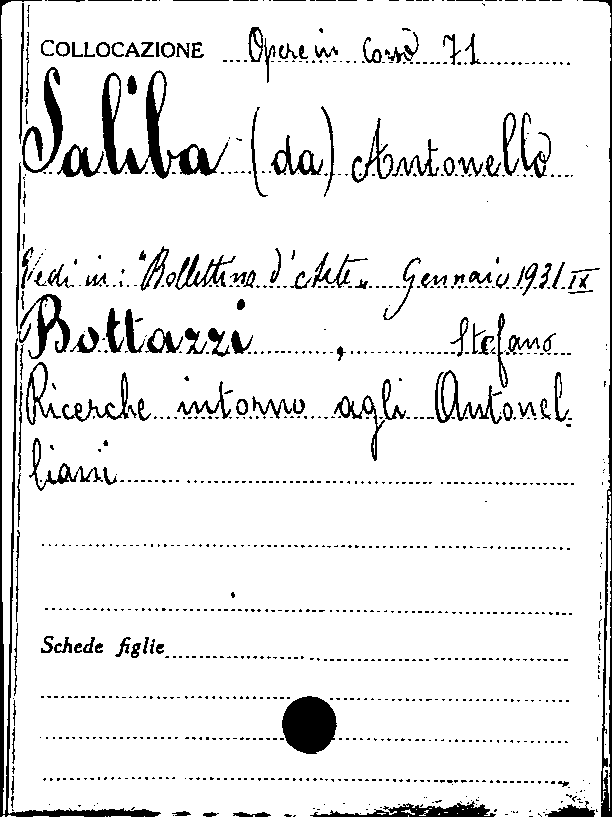 COLLOCAZIONE Opere in Corso 71
Saliba (da) Antonello
Vedi in: "Bollettino d'Arte" Gennaio 1931 IX
Bottazzi, Stefano
Ricerche intorno agli Antonel-
liani
Schede figlie